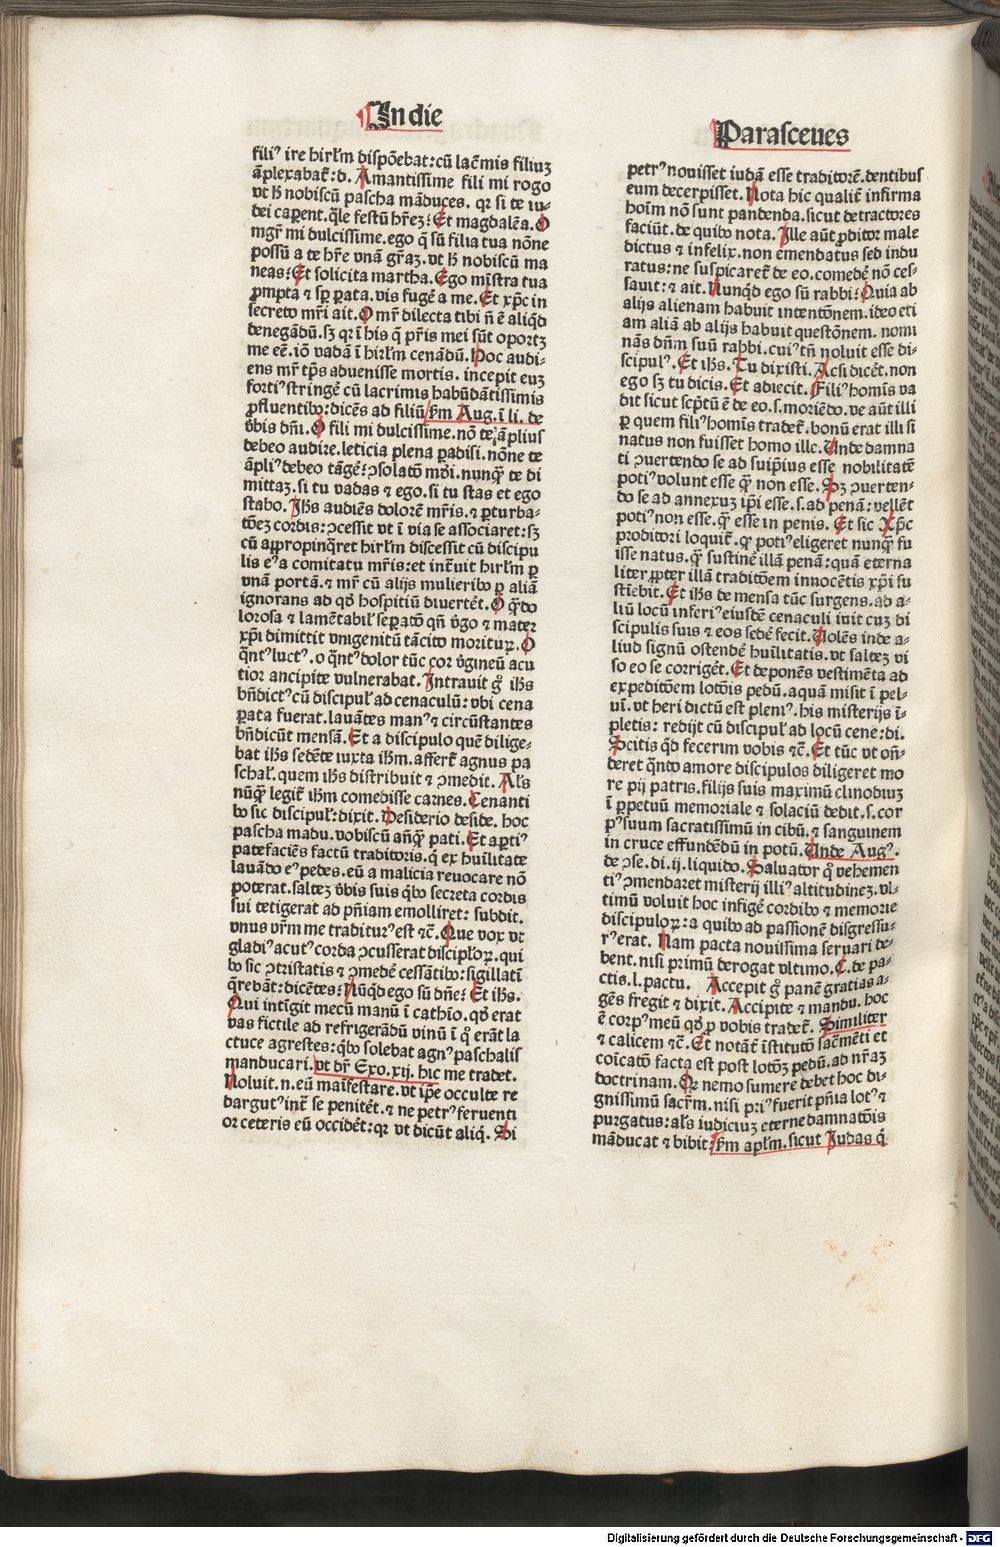 In die
Parasceues
fili⁹ ire hirłm dispōebat: cū lac̄mis filiuȝ
āplexabat̄: d. Amantissime fili mi rogo
vt ħ nobiscū pascha māduces. qr si te iu⸗
dei caperent. q̄le festū hr̄eȝ? Et magdalēa. O
mgr̄ mi dulcissime. ego q̄ sū filia tua nōne
possū a te hr̄e vnā gr̄aȝ. vt ħ nobiscū ma
neas? Et solicita martha. Ego mīstra tua
ꝓmpta & sꝑ ꝑata. vis fugē a me. Et xp̄c in
secreto mr̄i ait. O mr̄ dilecta tibi n̄ ē aliq̄d
denegādū. sȝ qr ī his q̄ pr̄is mei sūt oportȝ
me eē. iō vadā ī hirłm cenādū. Hoc audi⸗
ens mr̄ tp̄s aduenisse mortis. incepit euȝ
forti⁹ stringē cū lacrimis habūdātissimis
ꝓfluentibꝰ: dicēs ad filiū km̄ Aug. ī li. de
v̄bis dn̄i. O fili mi dulcissime. nō te āplius
debeo audire. leticia plena ꝑadisi. nōne te
āpli⁹ debeo tāgē? ꝯsolatō mūdi. nunq̄ te di
mittaȝ. si tu vadas & ego. si tu stas et ego
stabo. Jh̄s audiēs dolorē mr̄is. & ꝑturba⸗
tōeȝ cordis: ꝯcessit vt ī via se associaret: sȝ
cū appropinq̄ret hirłm discessit cū discipu
lis e⁹ a comitatu mr̄is: et int̄uit hirłm ꝑ
vnā portā. & mr̄ cū alijs mulieribꝰ ꝑ aliā
ignorans ad qd̄ hospitiū diuertēt. O q̄ do
lorosa & lamētabił seꝑatō qn̄ v̄go & mater
xp̄i dimittit vnigenitū tācito moritur. O
q̄nt⁹ luct⁹. o q̄nt⁹ dolor tūc cor v̄gineū acu
tior ancipite vulnerabat. Intrauit g° ih̄s
bn̄dict⁹ cū discipuł ad cenaculū: vbi cena
ꝑata fuerat. lauātes man⁹ & circūstantes
bn̄dicūt mensā. Et a discipulo quē dilige⸗
bat ih̄s sedēte iuxta ih̄m. affert̄ agnus pa
schał. quem ih̄s distribuit & ꝯmedit. Alˢ
nūq̄ legit̄ ih̄m comedisse carnes. Cenanti
bꝰ sic discipuł: dixit. Desiderio deside. hoc
pascha madu. vobiscū an̄q̄ pati. Et aꝑti⁹
patefaciēs factū traditoris. q̄ ex hūilitate
lauādo e⁹ pedes. eū a malicia reuocare nō
poterat. salteȝ v̄bis suis q̄bꝰ secreta cordis
sui tetigerat ad pn̄iam emolliret: subdit.
vnus vr̄m me traditur⁹ est &c̄. Que vox vt
gladi⁹ acut⁹ corda ꝯcusserat discipłoꝝ. qui
bꝰ sic ꝯtristatis & ꝯmedē cessātibꝰ: sigillatī
q̄rebāt: dicētes? Nūq̄d ego sū dn̄e? Et ih̄s.
Qui intīgit mecū manū ī cathīo. qd̄ erat
vas fictile ad refrigerādū vinū ī q° erāt la
ctuce agrestes: q̄bꝰ solebat agn⁹ paschalis
manducari. vt dr̄ Exo. xij. hic me tradet.
Noluit. n. eū maīfestare. vt ip̄e occulte re
dargut⁹ int̄ se penitēt. & ne petr⁹ feruenti
or ceteris eū occidēt: qr vt dicūt aliq̄. Si
petr⁹ nouisset iudā esse traditorē. dentibus
eum decerpisset. Nota hic qualit̄ infirma
hoīm nō sunt pandenda. sicut detractores
faciūt. de quibꝰ nota. Ille aūt ꝓditor male
dictus & infelix. non emendatus sed indu
ratus: ne suspicaret̄ de eo. comedē nō ces⸗
sauit: & ait. Nunq̄d ego sū rabbi? Quia ab
alijs alienam habuit intentōnem. ideo eti
am aliā ab alijs habuit questōnem. nomi
nās dn̄m suū rabbi. cui⁹ tn̄ noluit esse di⸗
scipul⁹. Et ih̄s. Tu dixisti. Acsi dicēt. non
ego sȝ tu dicis. Et adiecit. Fili⁹ homīs va
dit sicut scp̄tū ē de eo. s. moriēdo. ve aūt illi
ꝑ quem fili⁹ homīs tradet̄. bonū erat illi si
natus non fuisset homo ille. Unde damna
ti ꝯuertendo se ad suip̄ius esse nobilitatē
poti⁹ volunt esse q̄ non esse. Sȝ ꝯuerten⸗
do se ad annexuȝ ip̄i esse. s. ad penā: vellēt
poti⁹ non esse. q̄ esse in penis. Et sic Xp̄c
proditori loquit̄. q poti⁹ eligeret nunq̄ fu
isse natus. q̄ sustinē illā penā: quā eterna
liter ꝓpter illā traditōem innocētis xp̄i su
stīebit. Et ih̄s de mensa tūc surgens. ad a⸗
liū locū inferi⁹ eiusdē cenaculi iuit cuȝ di
scipulis suis & eos sedē fecit. Uolēs inde a⸗
liud signū ostendē hūilitatis. vt salteȝ vi
so eo se corrigēt. Et deponēs vestimēta ad
expeditōem lotōis pedū. aquā misit ī pel⸗
uī. vt heri dictū est pleni⁹. his misterijs ī⸗
pletis: redijt cū discipuł ad locū cene: di.
Scitis q̄d fecerim vobis &c̄. Et tūc vt on̄⸗
deret q̄nto amore discipulos diligeret mo
re pij patris. filijs suis maximū clinodiuȝ
ī ꝑpetuū memoriale & solaciū dedit. s. cor
p⁹ suum sacratissimū in cibū. & sanguinem
in cruce effundēdū in potū. Unde Aug⁹.
de ꝯse. di. ij. liquido. Saluator q° vehemen
ti⁹ ꝯmendaret misterij illi⁹ altitudineȝ. vl⸗
timū voluit hoc infigē cordibꝰ & memorie
discipuloꝝ: a quibꝰ ad passionē disgressu⸗
r⁹ erat. Nam pacta nouissima seruari de⸗
bent. nisi primū derogat vltimo. C. de pa⸗
ctis. l. pactu. Accepit g° panē gratias a⸗
gēs fregit & dixit. Accipite & mandu. hoc
ē corp⁹ meū qd̄ ꝓ vobis tradet̄. Similiter
& calicem &c̄. Et notāt̄ īstitutō sac̄mēti et
coīcatō facta est post lotōȝ pedū. ad nr̄aȝ
doctrinam. Qr nemo sumere debet hoc di⸗
gnissimū sacr̄m. nisi pri⁹ fuerit pn̄ia lot⁹ &
purgatus: alˢ iudiciuȝ eterne damnatōis
māducat & bibit: km̄ apłm. sicut Judas q̄
Digitalisierung gefördert durch die Deutsche Forschungsgemeinschaft - DFG